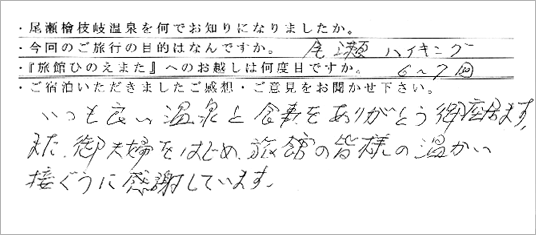 ・尾瀬檜枝岐温泉を何でお知りになりましたか。
・今回のご旅行の目的はなんですか。 尾瀬ハイキング
・『旅館ひのえまた』へのお越しは何度目ですか。 6〜7回
・ご宿泊いただきましたご感想・ご意見をお聞かせ下さい。
いつも良い温泉と食事をありがとう御座居ます。
また、御夫婦をはじめ、旅館の皆様の温かい
接ぐうに感謝しています。